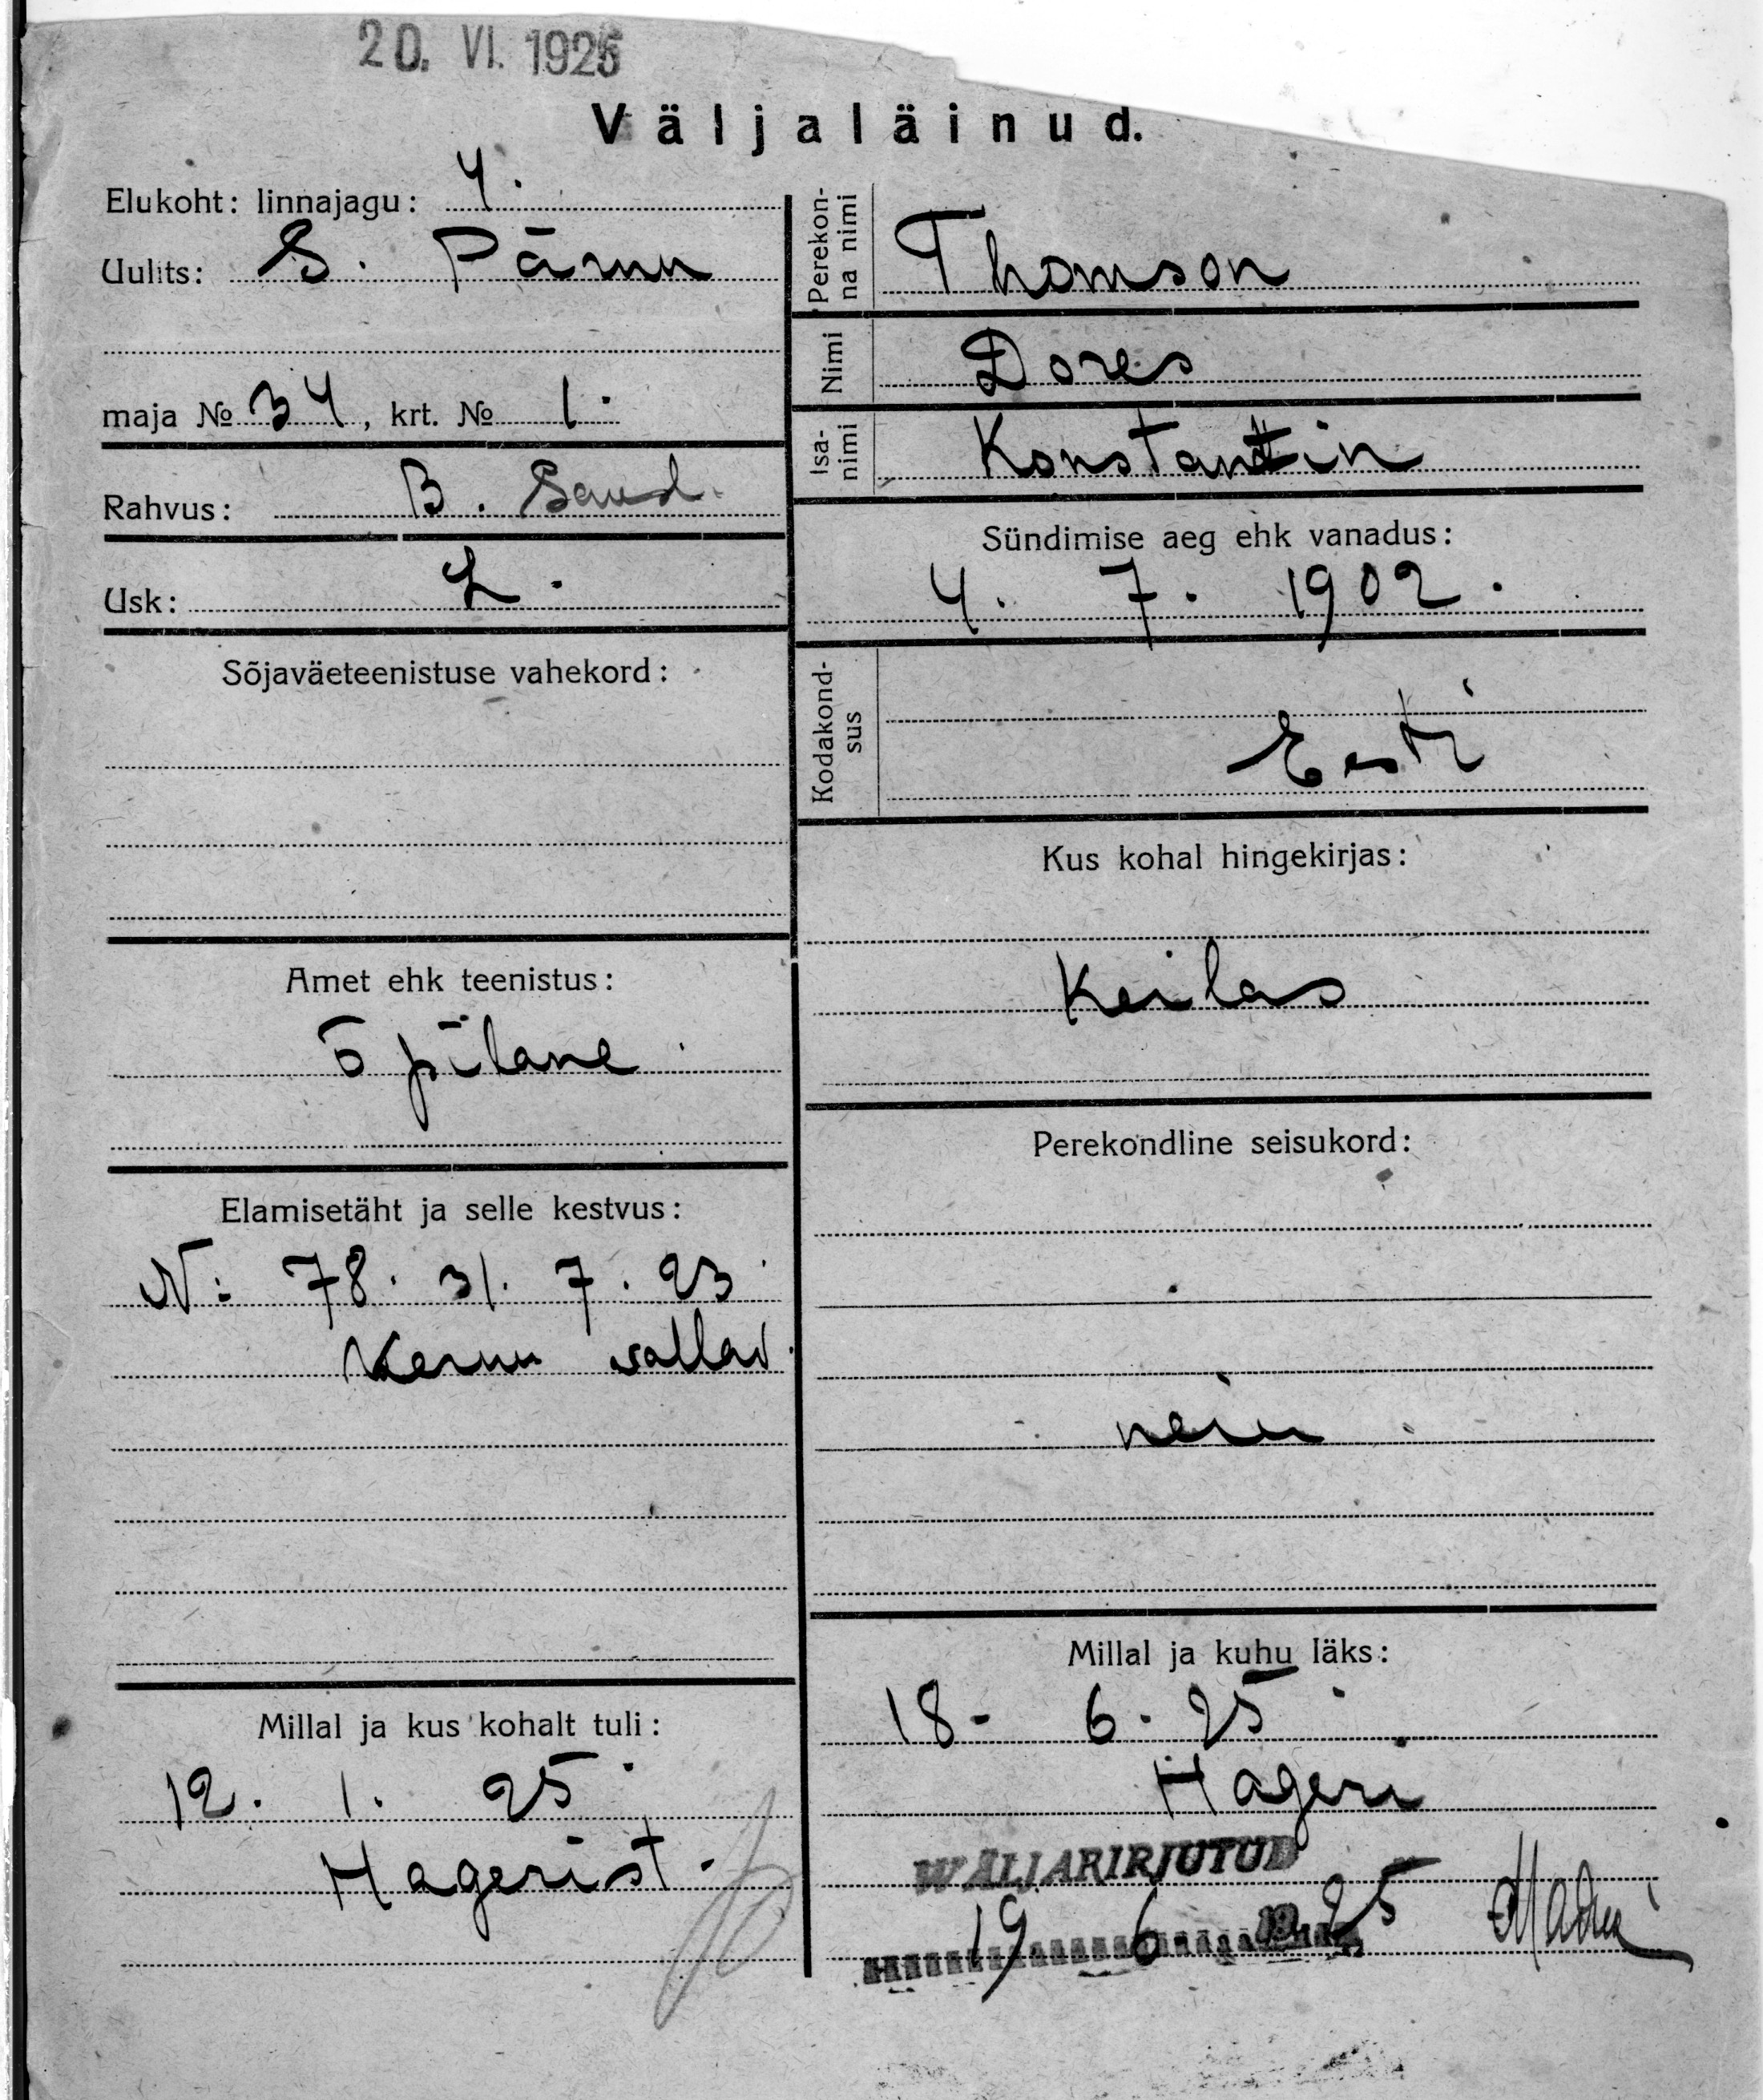 20. VI. 1925
Väljaläinud.
Elukoht: linnajagu: 4.
Uulits: S. Pärnu
maja № 34, krt. № 1.
Rahvus: B.
Usk: L.
Sõjaväeteenistuse vahekord:
Amet ehk teenistus:
õpilane
Elamisetäht ja selle kestvus:
N: 78. 31. 7. 23.
Kernu vallav.
Millal ja kus kohalt tuli:
12. 1. 25.
Hagerist.
Perekon-
na nimi Thomson
Nimi Dores
Isa-
nimi Konstantin
Sündimise aeg ehk vanadus:
4. 7. 1902.
Kodakond-
sus Eesti
Kus kohal hingekirjas:
Keilas
Perekondline seisukord:
neiu
Millal ja kuhu läks:
18- 6. 25.
Hageri
WÄLJAKIRJUTUD
19 6 19 25